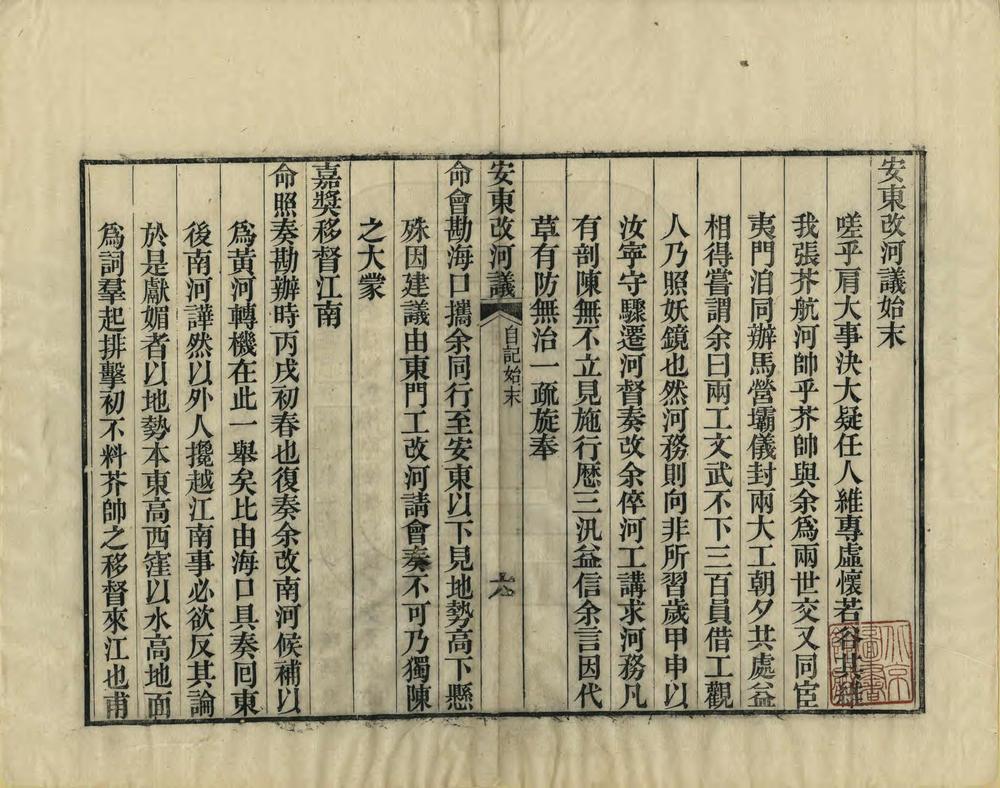 安東改河議始末
嗟乎肩大事決大疑任人維專虛懷若谷其維
我張芥航河帥乎芥帥與余爲兩世交又同宦
夷門洎同辦馬營壩儀封兩大工朝夕共處益
相得嘗謂余曰兩工文武不下三百員借工觀
人乃照妖鏡也然河務則向非所習歲甲申以
汝寧守驟遷河督奏改余倅河工講求河務凡
有剖陳無不立見施行歷三汛益信余言因代
草有防無治一疏旋奉
安東改河議
自記始末
六
命會勘海口攜余同行至安東以下見地勢高下懸
殊因建議由東門工改河請會奏不可乃獨陳
之大蒙
嘉奬移督江南
命照奏勘辦時丙戌初春也復奏余改南河候補以
爲黃河轉機在此一舉矣比由海口具奏囘東
後南河譁然以外人攙越江南事必欲反其論
於是獻媚者以地勢本東高西窪以水高地面
爲詞羣起排擊初不料芥帥之移督來江也甫